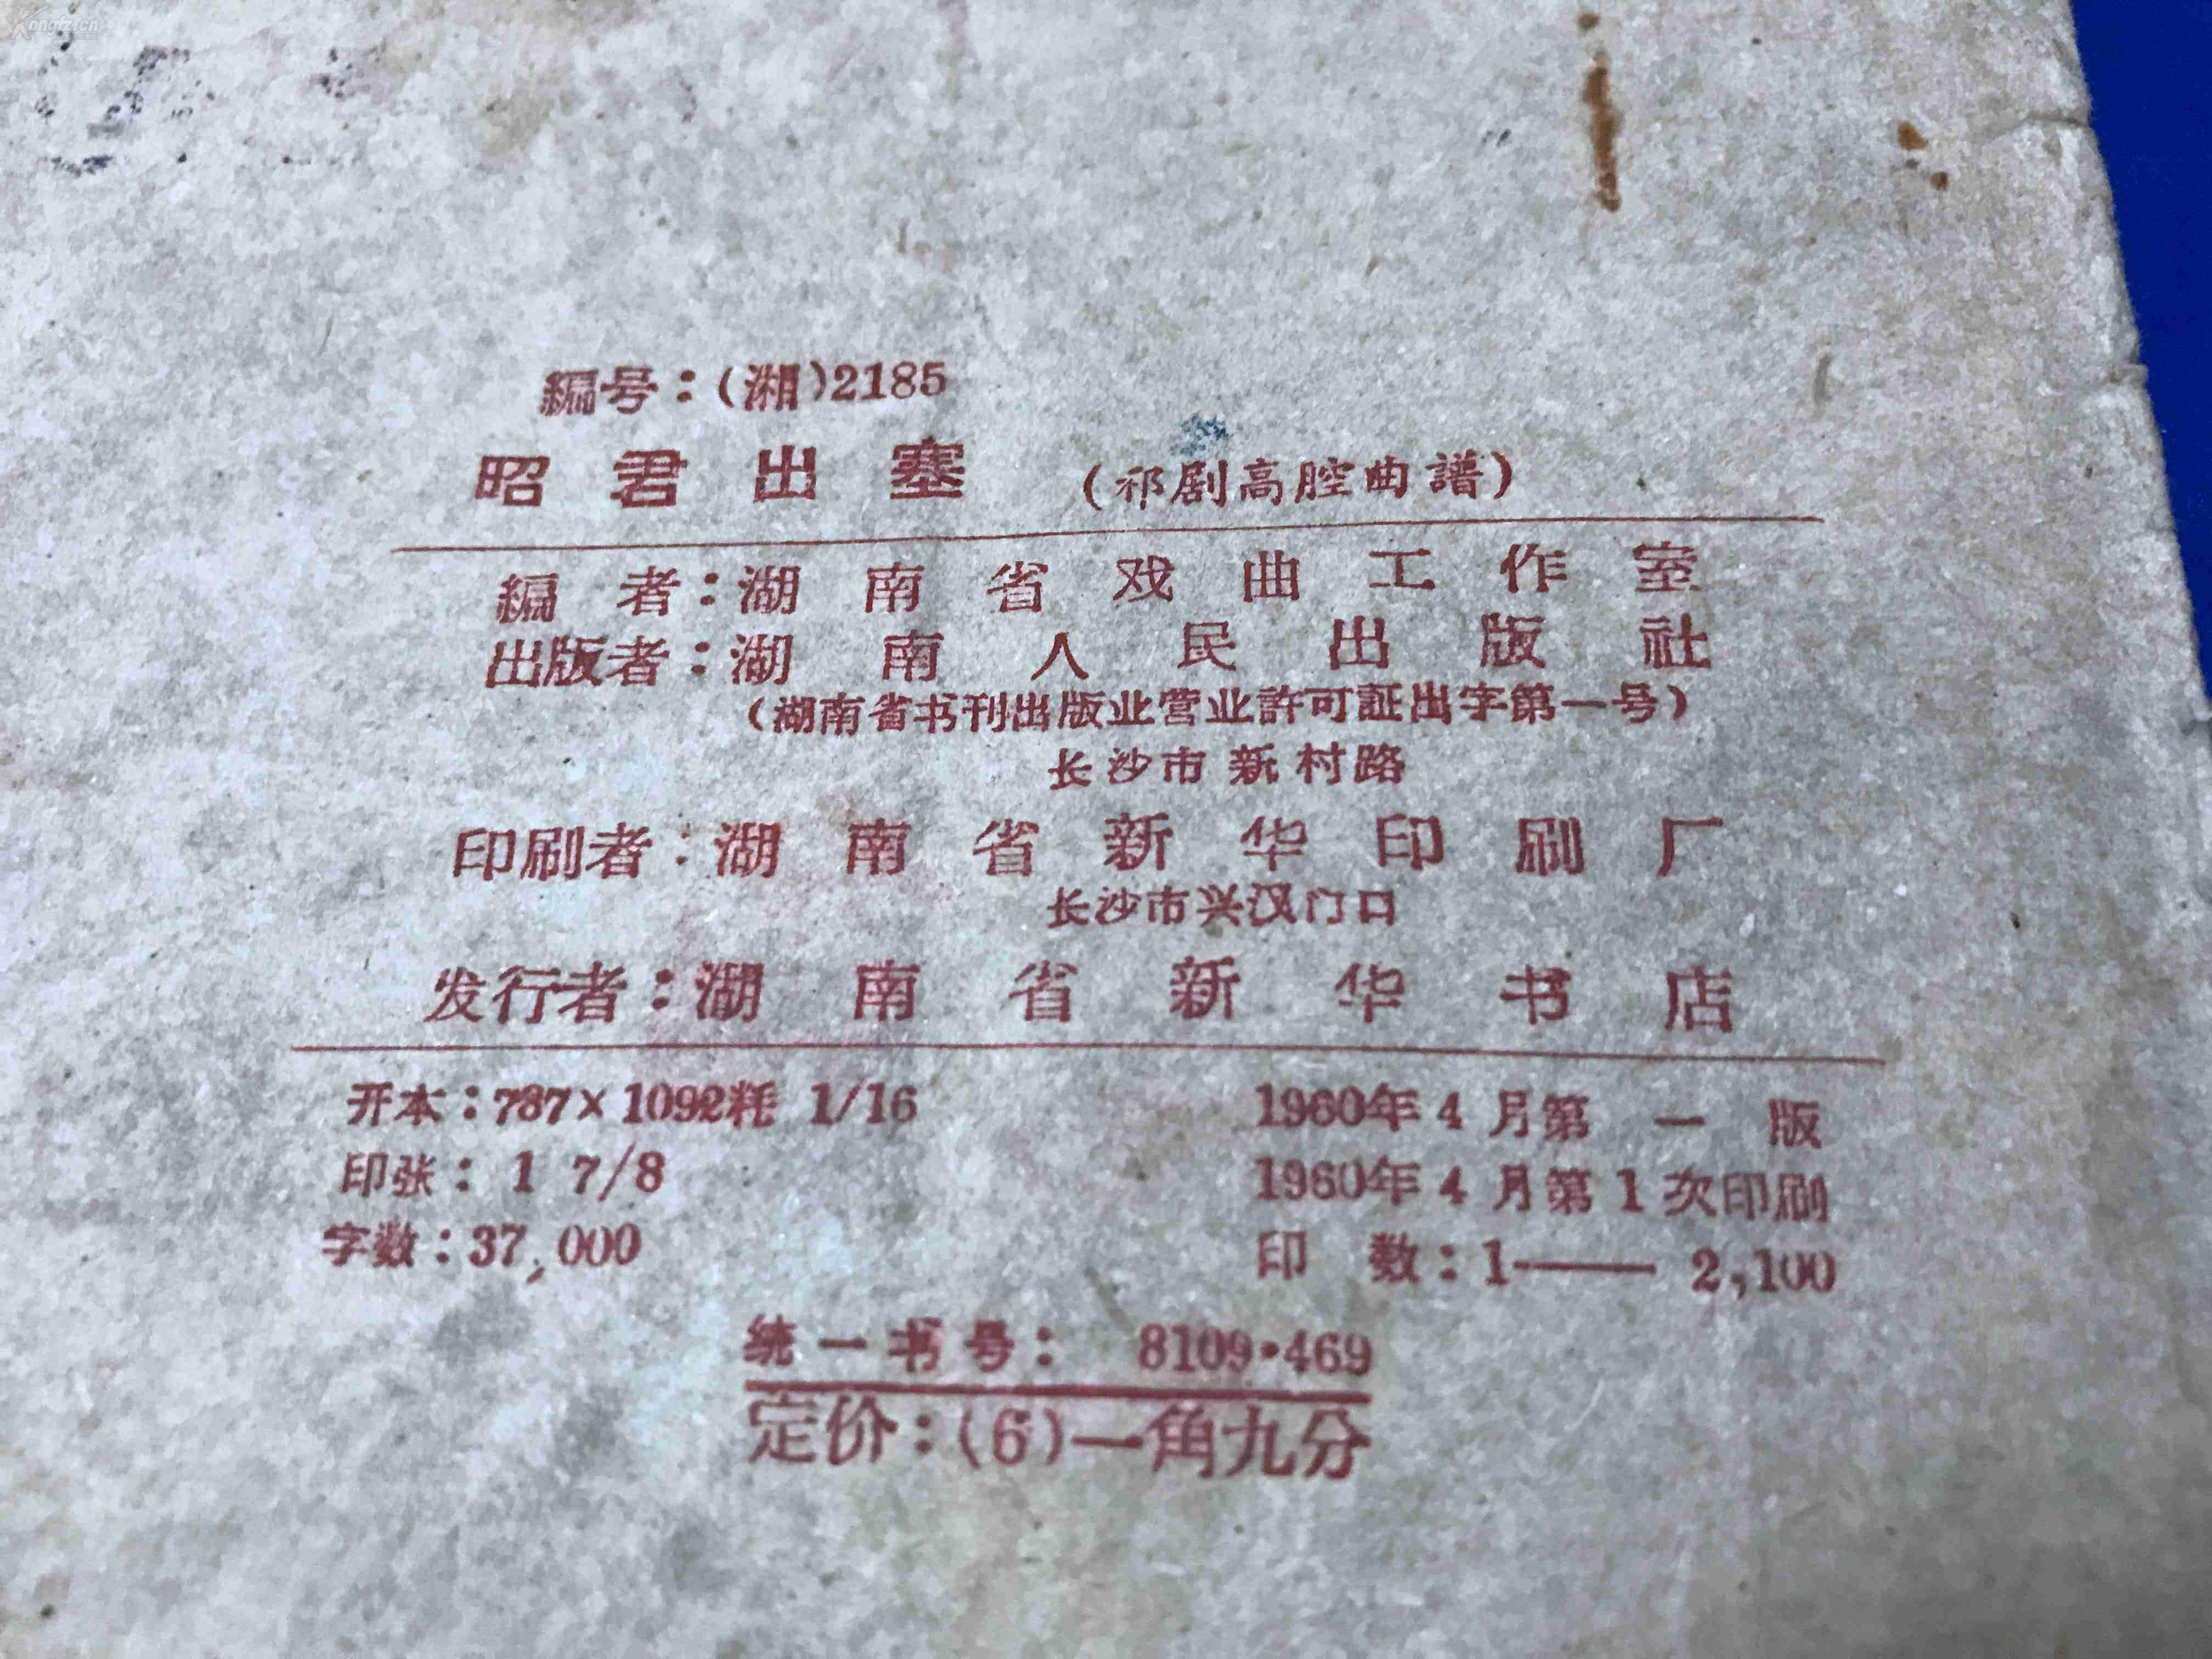 Kongfz.cn
編号：(湘)2185
昭君出塞 (祁剧高腔曲譜)
編者：湖南省戏曲工作室
出版者：湖南人民出版社
(湖南省书刊出版业营业許可証出字第一号)
长沙市新村路
印刷者：湖南省新华印刷厂
长沙市兴汉门口
发行者：湖南省新华书店
开本：787×1092粍 1/16
1960年4月第一版
印张：1 7/8
1960年4月第1次印刷
字数：37,000
印数：1—— 2,100
统一书号： 8109·469
定价：(6)一角九分